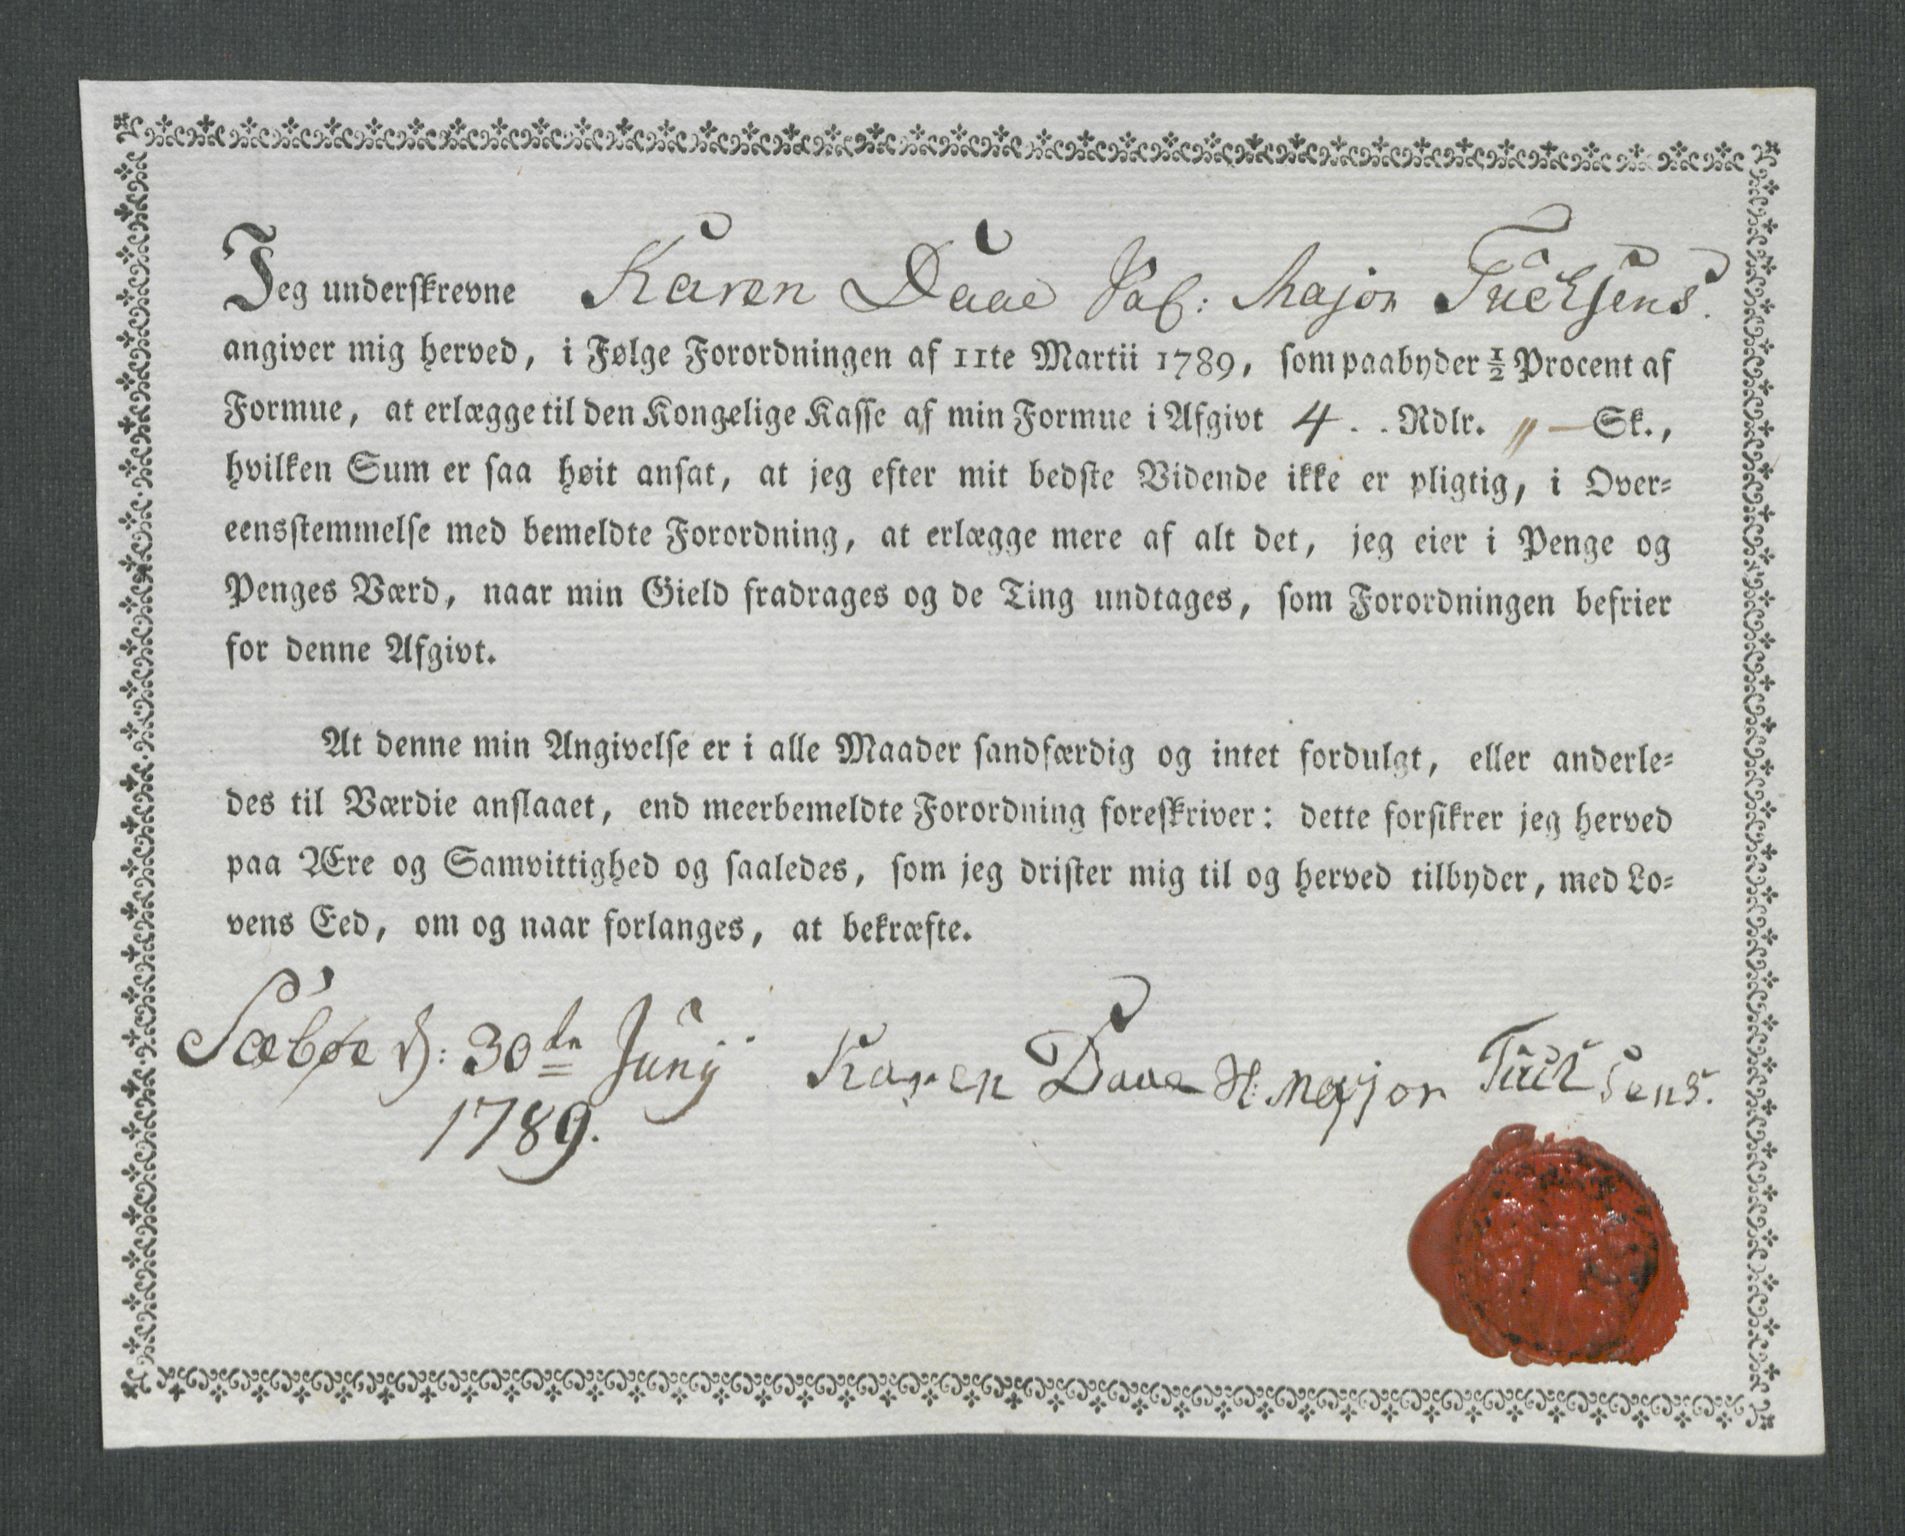 Jeg underskrevne Karen Daae Sal: Major Fuchsens.
angiver mig herved, i Følge Forordningen af 11te Martii 1789, som paabyder ½ Procent af
Formue, at erlægge til den Kongelige Kasse af min Formue i Afgivt 4 . . Rdlr. „ — Sk.,
hvilken Sum er saa høit ansat, at jeg efter mit bedste Vidende ikke er pligtig, i Over-
eensstemmelse med bemeldte Forordning, at erlægge mere af alt det, jeg eier i Penge og
Penges Værd, naar min Gield fradrages og de Ting undtages, som Forordningen befrier
for denne Afgivt.
At denne min Angivelse er i alle Maader sandfærdig og intet fordulgt, eller anderle-
des til Værdie anslaaet, end meerbemeldte Forordning foreskriver: dette forsikrer jeg herved
paa Ære og Samvittighed og saaledes, som jeg drister mig til og herved tilbyder, med Lo-
vens Eed, om og naar forlanges, at bekræfte.
Sæbøe d: 30te Junij Karen Daae Major Fuchsens.
1789.